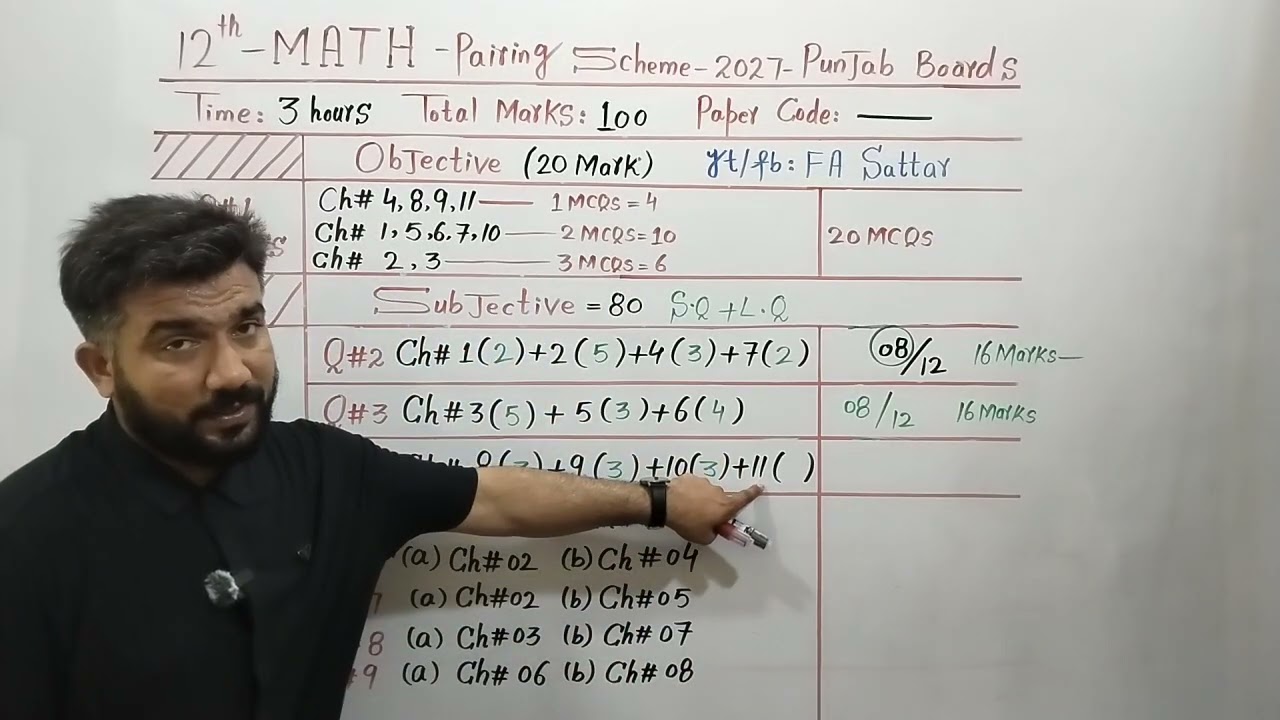 12th - MATH - Pairing Scheme - 2027 - Punjab Boards
Time: 3 hours Total Marks: 100 Paper Code: ——
Objective (20 Mark) yt/fb: FA Sattar
Ch# 4, 8, 9, 11 —— 1 MCQS = 4
Ch# 1, 5, 6, 7, 10 —— 2 MCQS = 10 20 MCQS
Ch# 2, 3 —— 3 MCQS = 6
Subjective = 80 S.Q + L.Q
Q#2 Ch# 1(2)+2(5)+4(3)+7(2) 08/12 16 Marks—
Q#3 Ch# 3(5) + 5(3)+6(4) 08/12 16 Marks
+9(3)+10(3)+11( )
(a) Ch# 02 (b) Ch# 04
7 (a) Ch# 02 (b) Ch# 05
8 (a) Ch# 03 (b) Ch# 07
#9 (a) Ch# 06 (b) Ch# 08